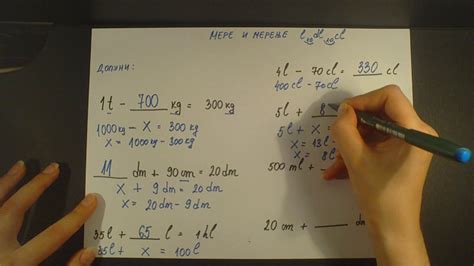 МЕРЕ И МЕРЕЊЕ l 10 dl 10 cl
ДОПУНИ:
1t - 700 kg = 300 kg
1000 kg - x = 300 kg
x = 1000 kg - 300 kg
11 dm + 90 cm = 20 dm
x + 9 dm = 20 dm
x = 20 dm - 9 dm
35l + 65 l = 1 hl
35l + x = 100 l
4l - 70 cl = 330 cl
400 cl - 70 cl
5l + 8
5l + x =
x = 13l -
x = 8l
500 ml +
20 cm + ___ d